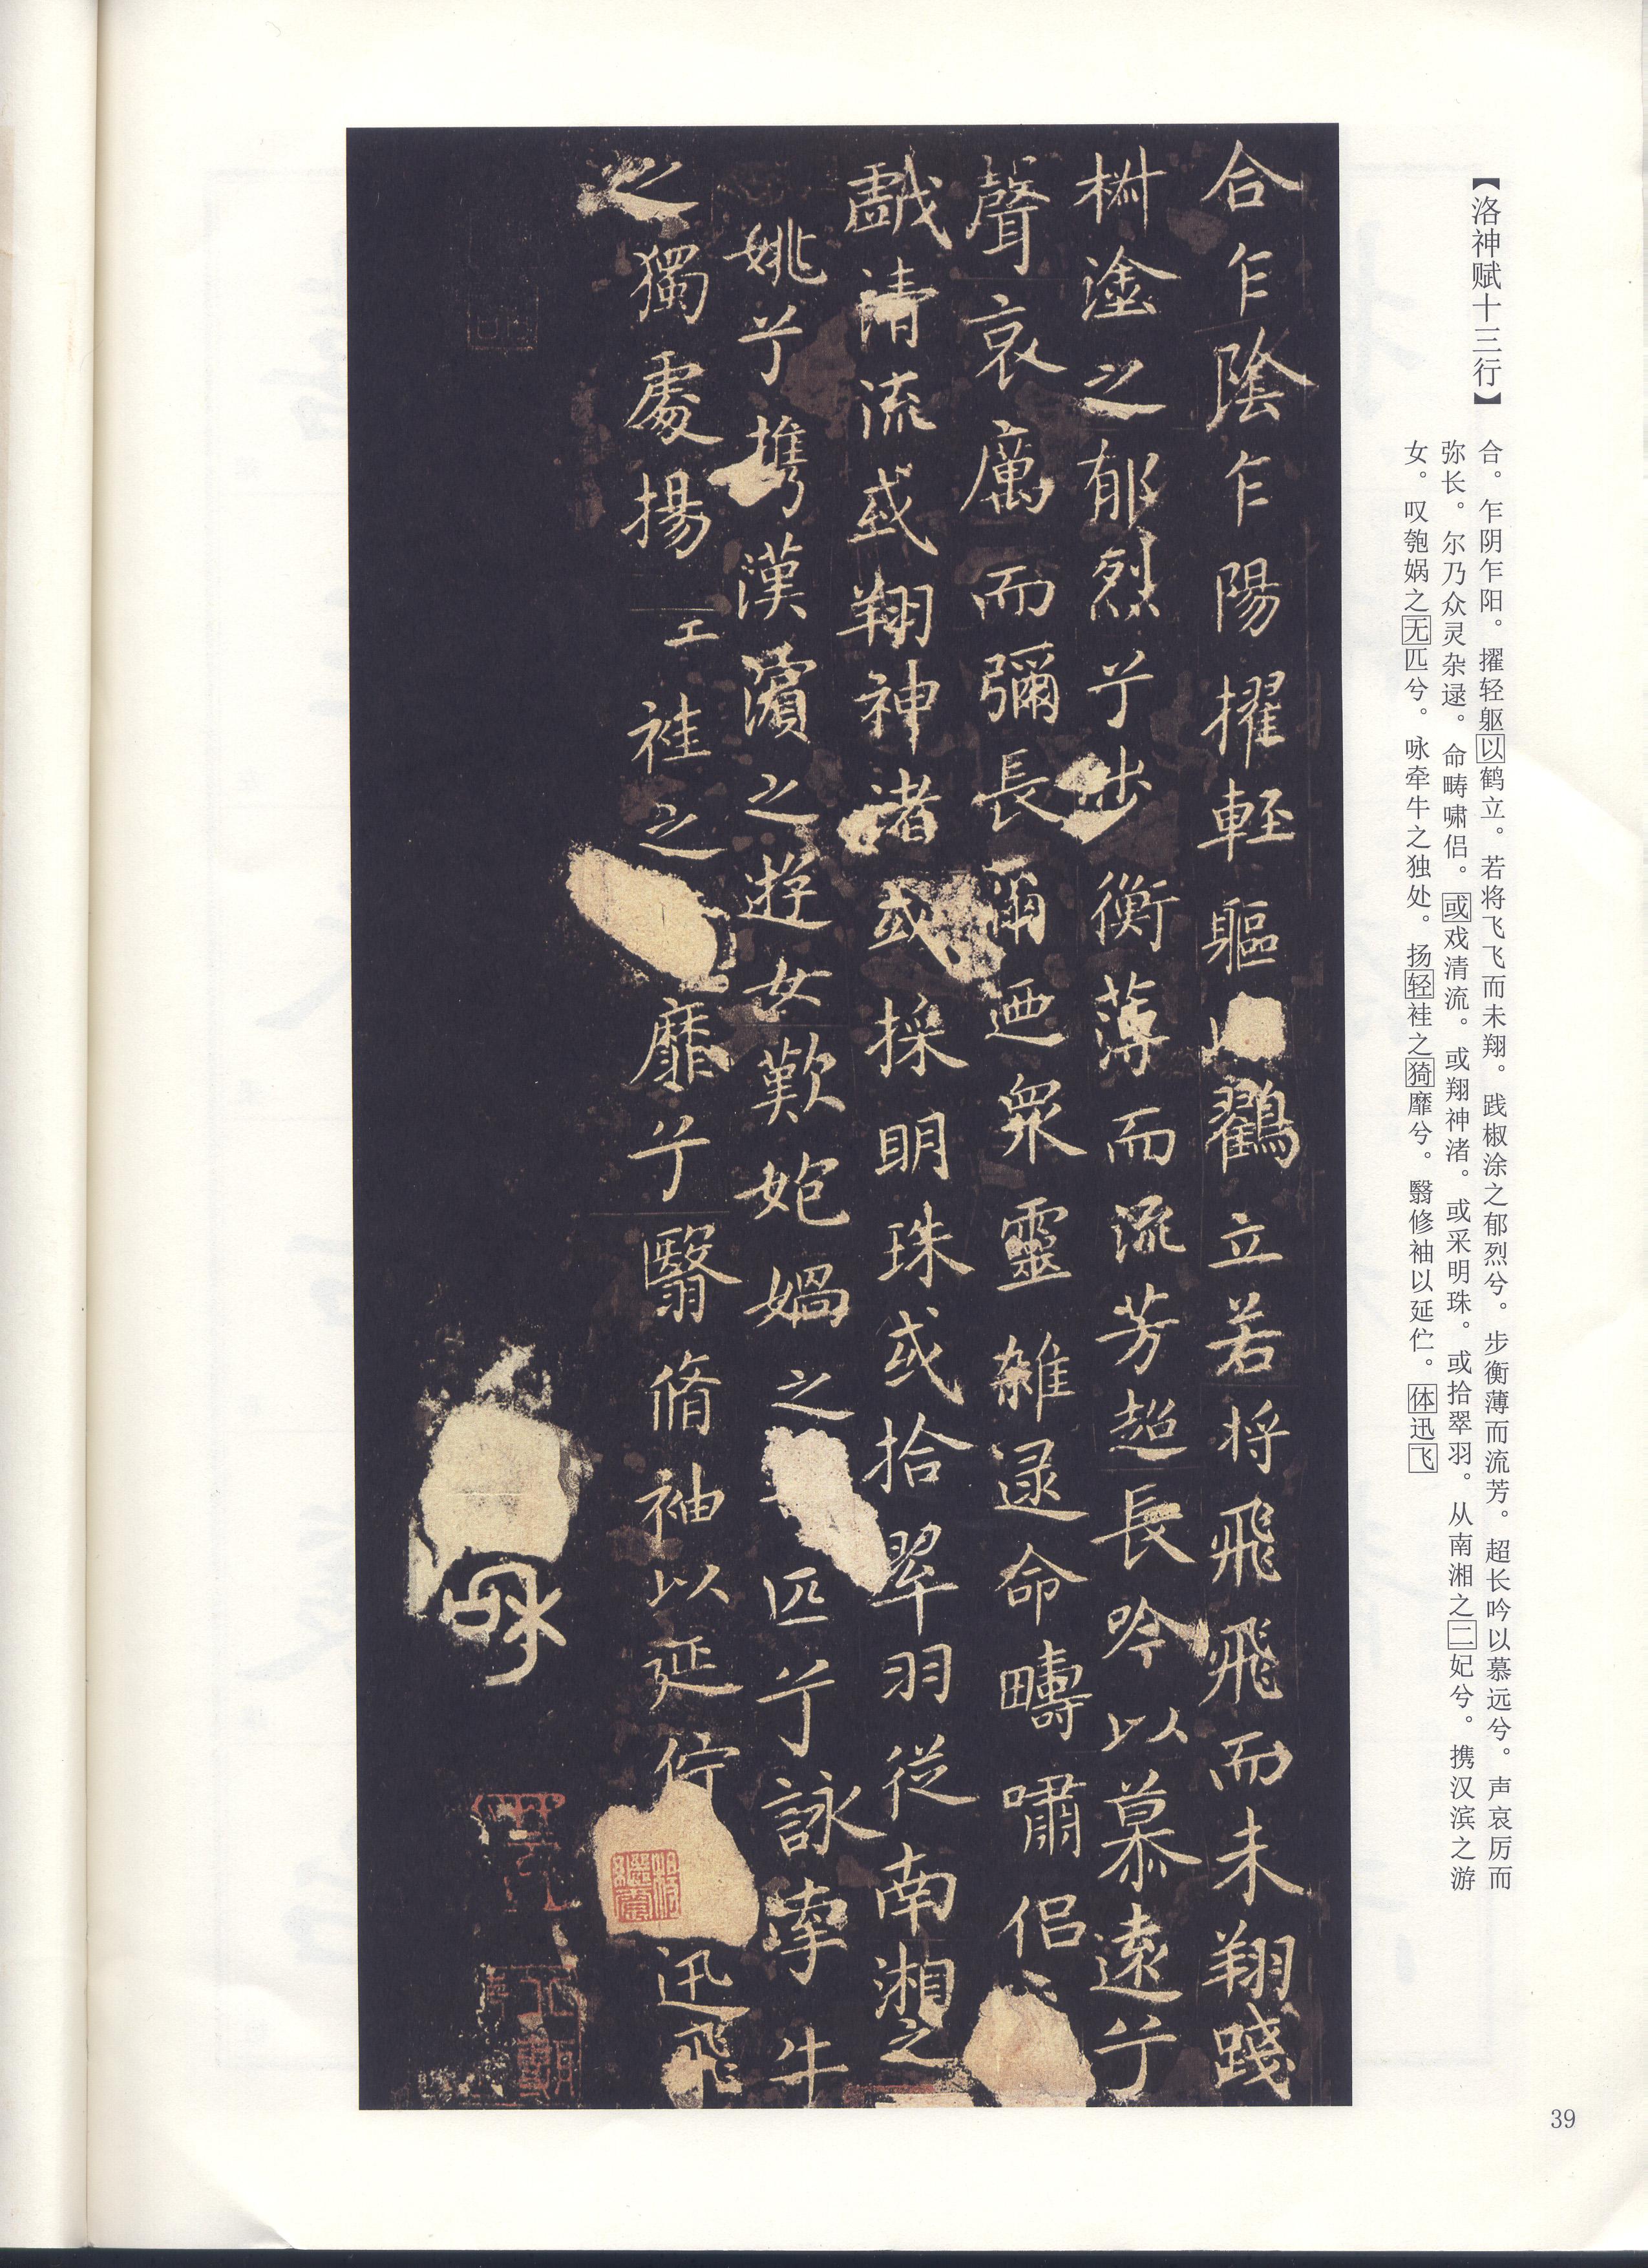 【洛神赋十三行】
合。乍阴乍阳。擢轻躯以鹤立。若将飞飞而未翔。践椒涂之郁烈兮。步衡薄而流芳。超长吟以慕远兮。声哀厉而
弥长。尔乃众灵杂逯。命畴啸侣。或戏清流。或翔神渚。或采明珠。或拾翠羽。从南湘之二妃兮。携汉滨之游
女。叹匏娲之无匹兮。咏牵牛之独处。扬轻袿之猗靡兮。翳修袖以延伫。体迅飞
合乍陰乍陽擢輕軀鸖立若将飛飛而未翔踐
樹塗之郁烈兮步衡薄而流芳超長吟以慕遠兮
聲哀厲而彌長爾迺衆靈雜逯命疇嘯侣
戲清流或翔神渚或採明珠或拾翠羽從南湘之
姚兮攜漢濱之遊女歎姲媧之匹兮詠牽牛
之獨處揚袿之靡兮翳脩袖以延佇迅飛
和
39